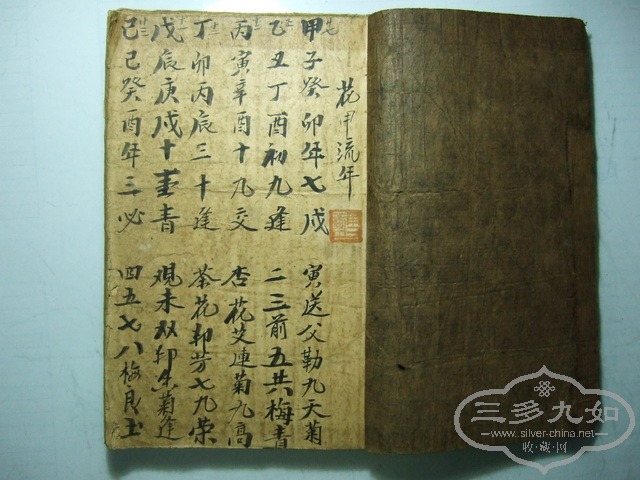 花甲流年
甲子癸卯年七戌 寅送父勒九天菊
乙丑丁酉初九逢 二三前五共梅青
丙寅辛酉十九交 杏花艾連菊九高
丁卯丙辰三十逢 茶花邦芳七九荣
戊辰庚戌十青 观未双卯菊逢
己巳癸酉年三必 四五七八梅
三多九如
www.silver-china.net
收·藏·网